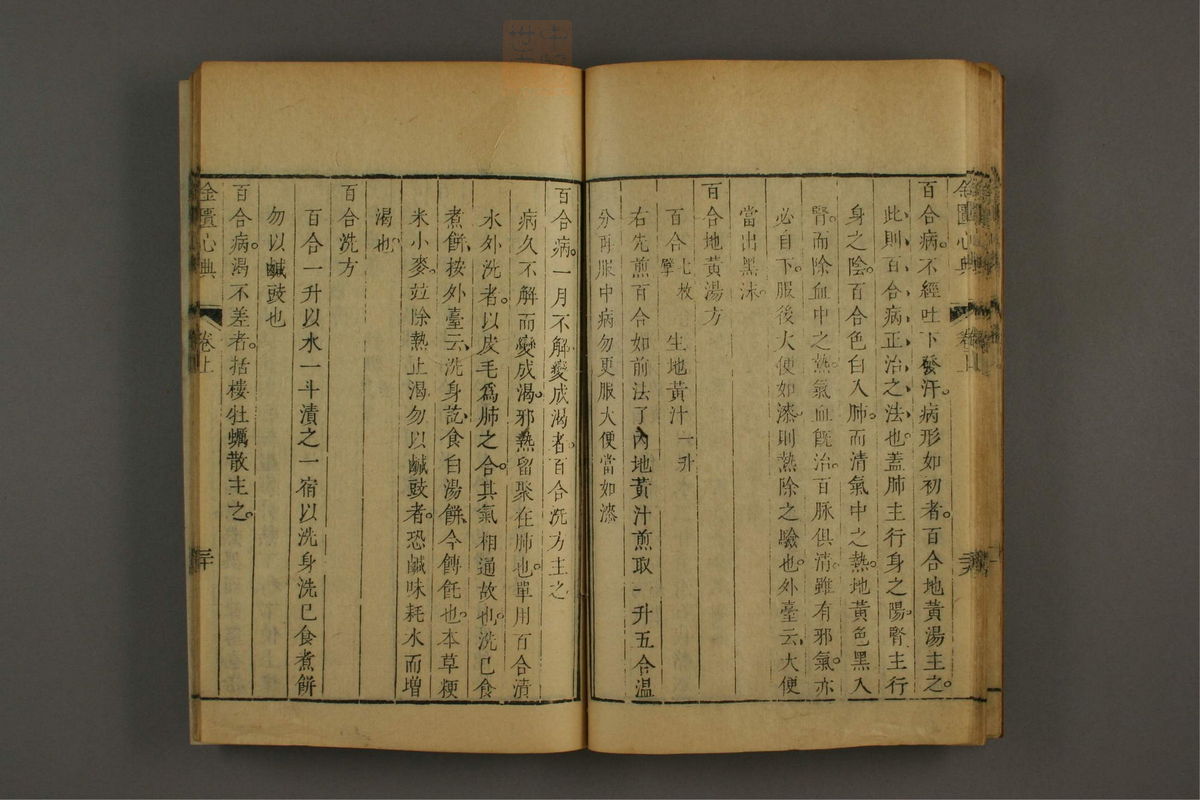 金匱心典 卷上
百合病。不經吐下發汗。病形如初者。百合地黃湯主之。
此則百合病正治之法也。蓋肺主行身之陽。腎主行
身之陰。百合色白入肺。而清氣中之熱。地黃色黑入
腎。而除血中之熱。氣血既治。百脉俱清。雖有邪氣。亦
必自下。服後大便如漆。則熱除之驗也。外臺云、大便
當出黑沫。
百合地黃湯方
百合七枚擘 生地黃汁一升
右先煎百合如前法了內地黃汁煎取一升五合溫
分再服中病勿更服大便當如漆
百合病。一月不解變成渴者。百合洗方主之
病久不解而變成渴。邪熱留聚在肺也。單用百合漬
水外洗者。以皮毛爲肺之合。其氣相通故也。洗已食
煮餅、按外臺云、洗身訖、食白湯餅、今餺飥也。本草粳
米小麥。竝除熱止渴。勿以鹹豉者。恐鹹味耗水而增
渴也、
百合洗方
百合一升以水一斗漬之一宿以洗身洗已食煮餅
勿以鹹豉也
百合病。渴不差者。括樓牡蠣散主之。
金匱心典 卷上 二十